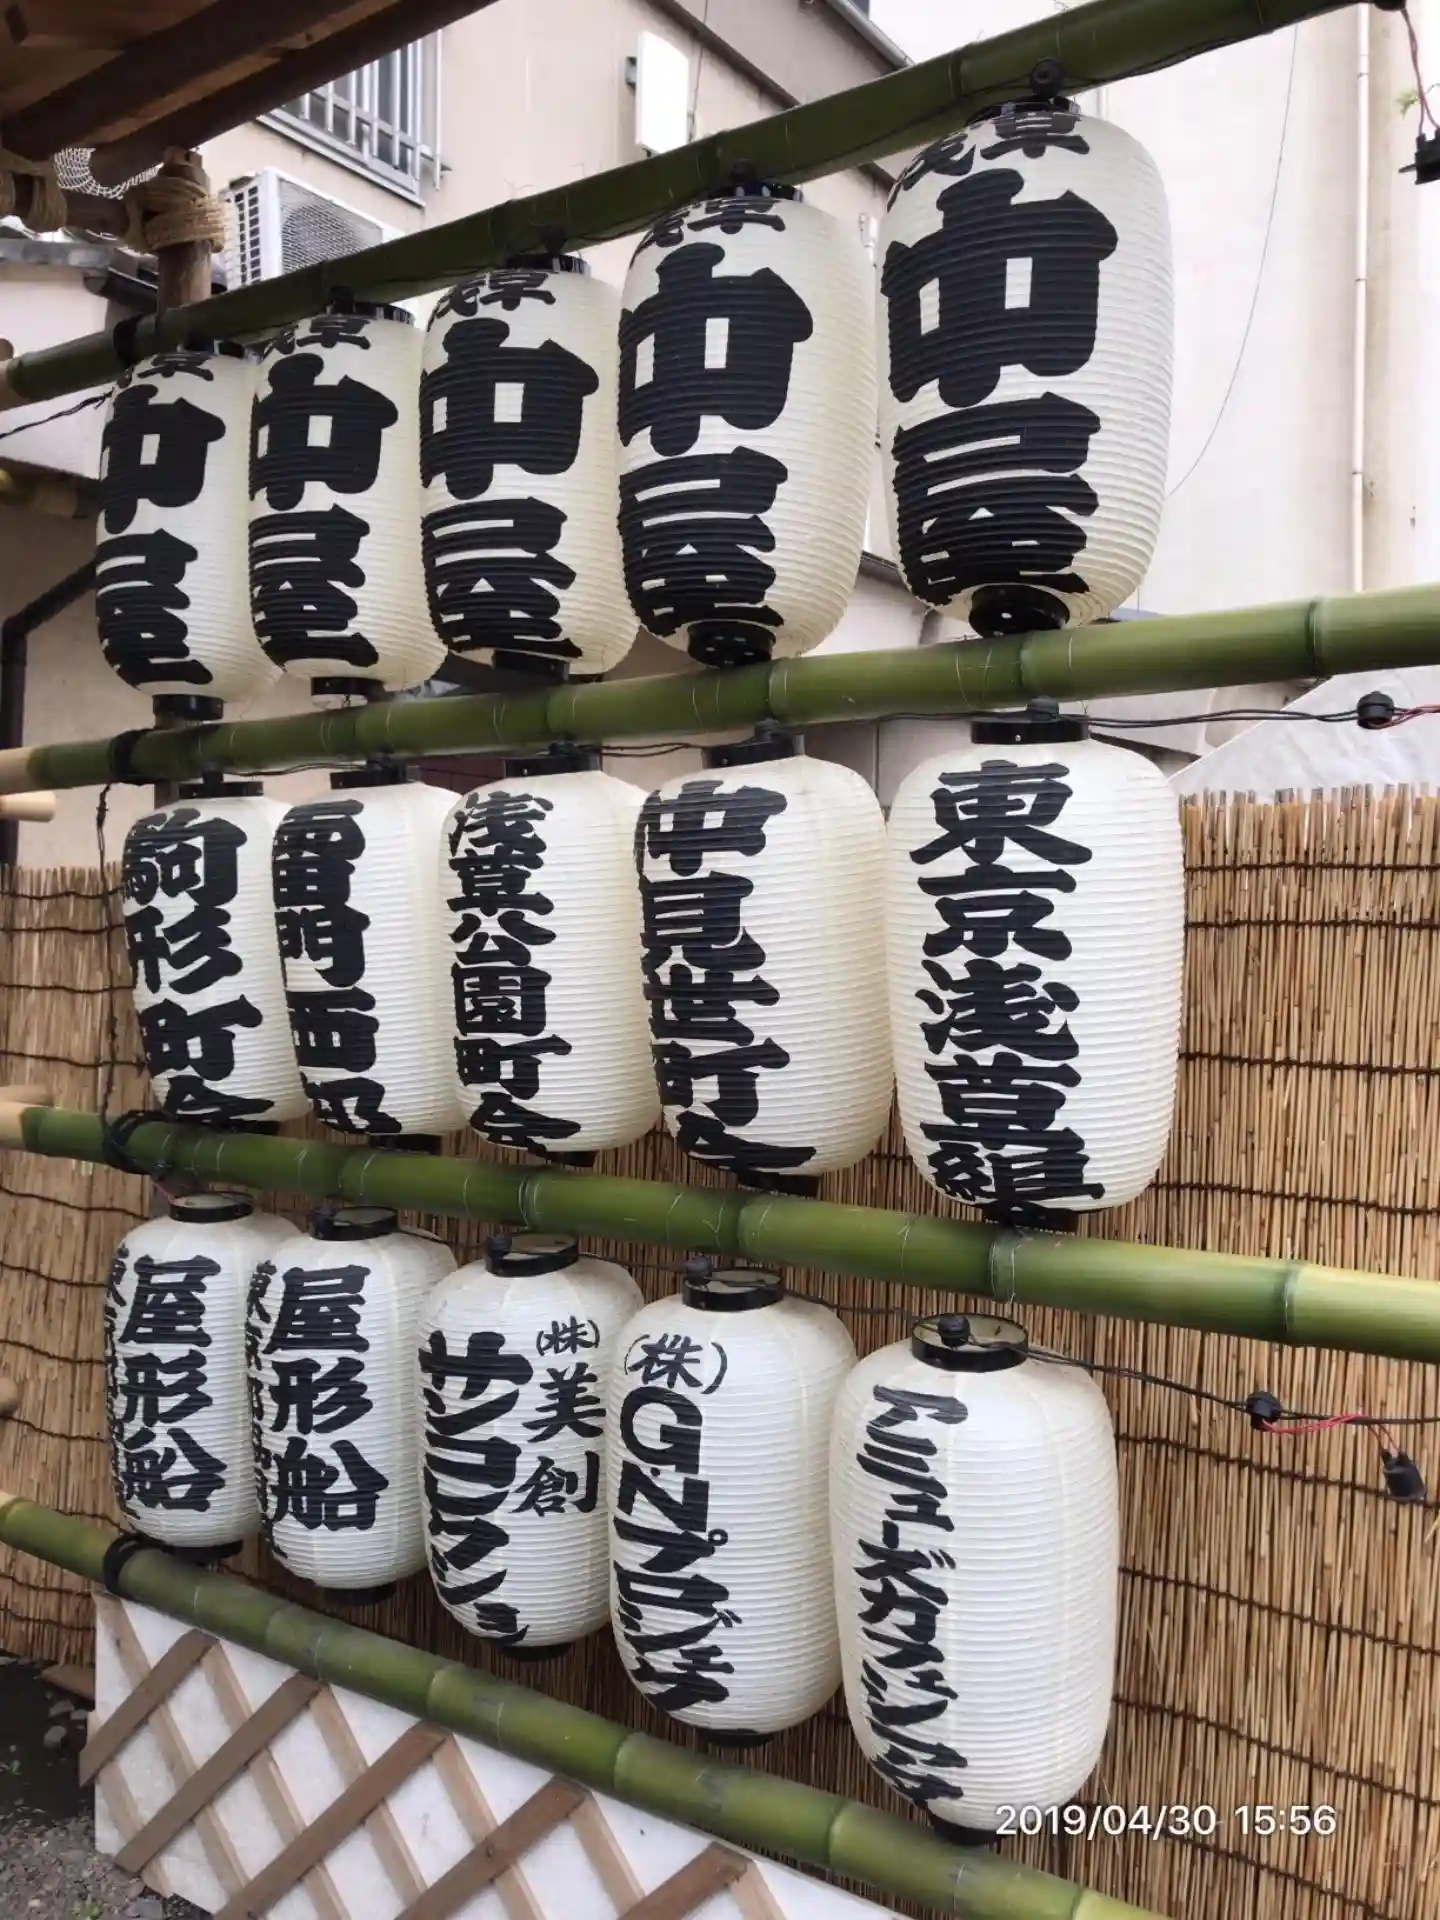 浅草
中屋
浅草
中屋
浅草
中屋
浅草
中屋
浅草
中屋
駒形町会
雷門西部
浅草公園町会
仲見世町会
東京浅草組
屋形船
屋形船
(株)美創
サンコレクション
(株)GNプロダンチ
アミューズカフェシアター
2019/04/30 15:56